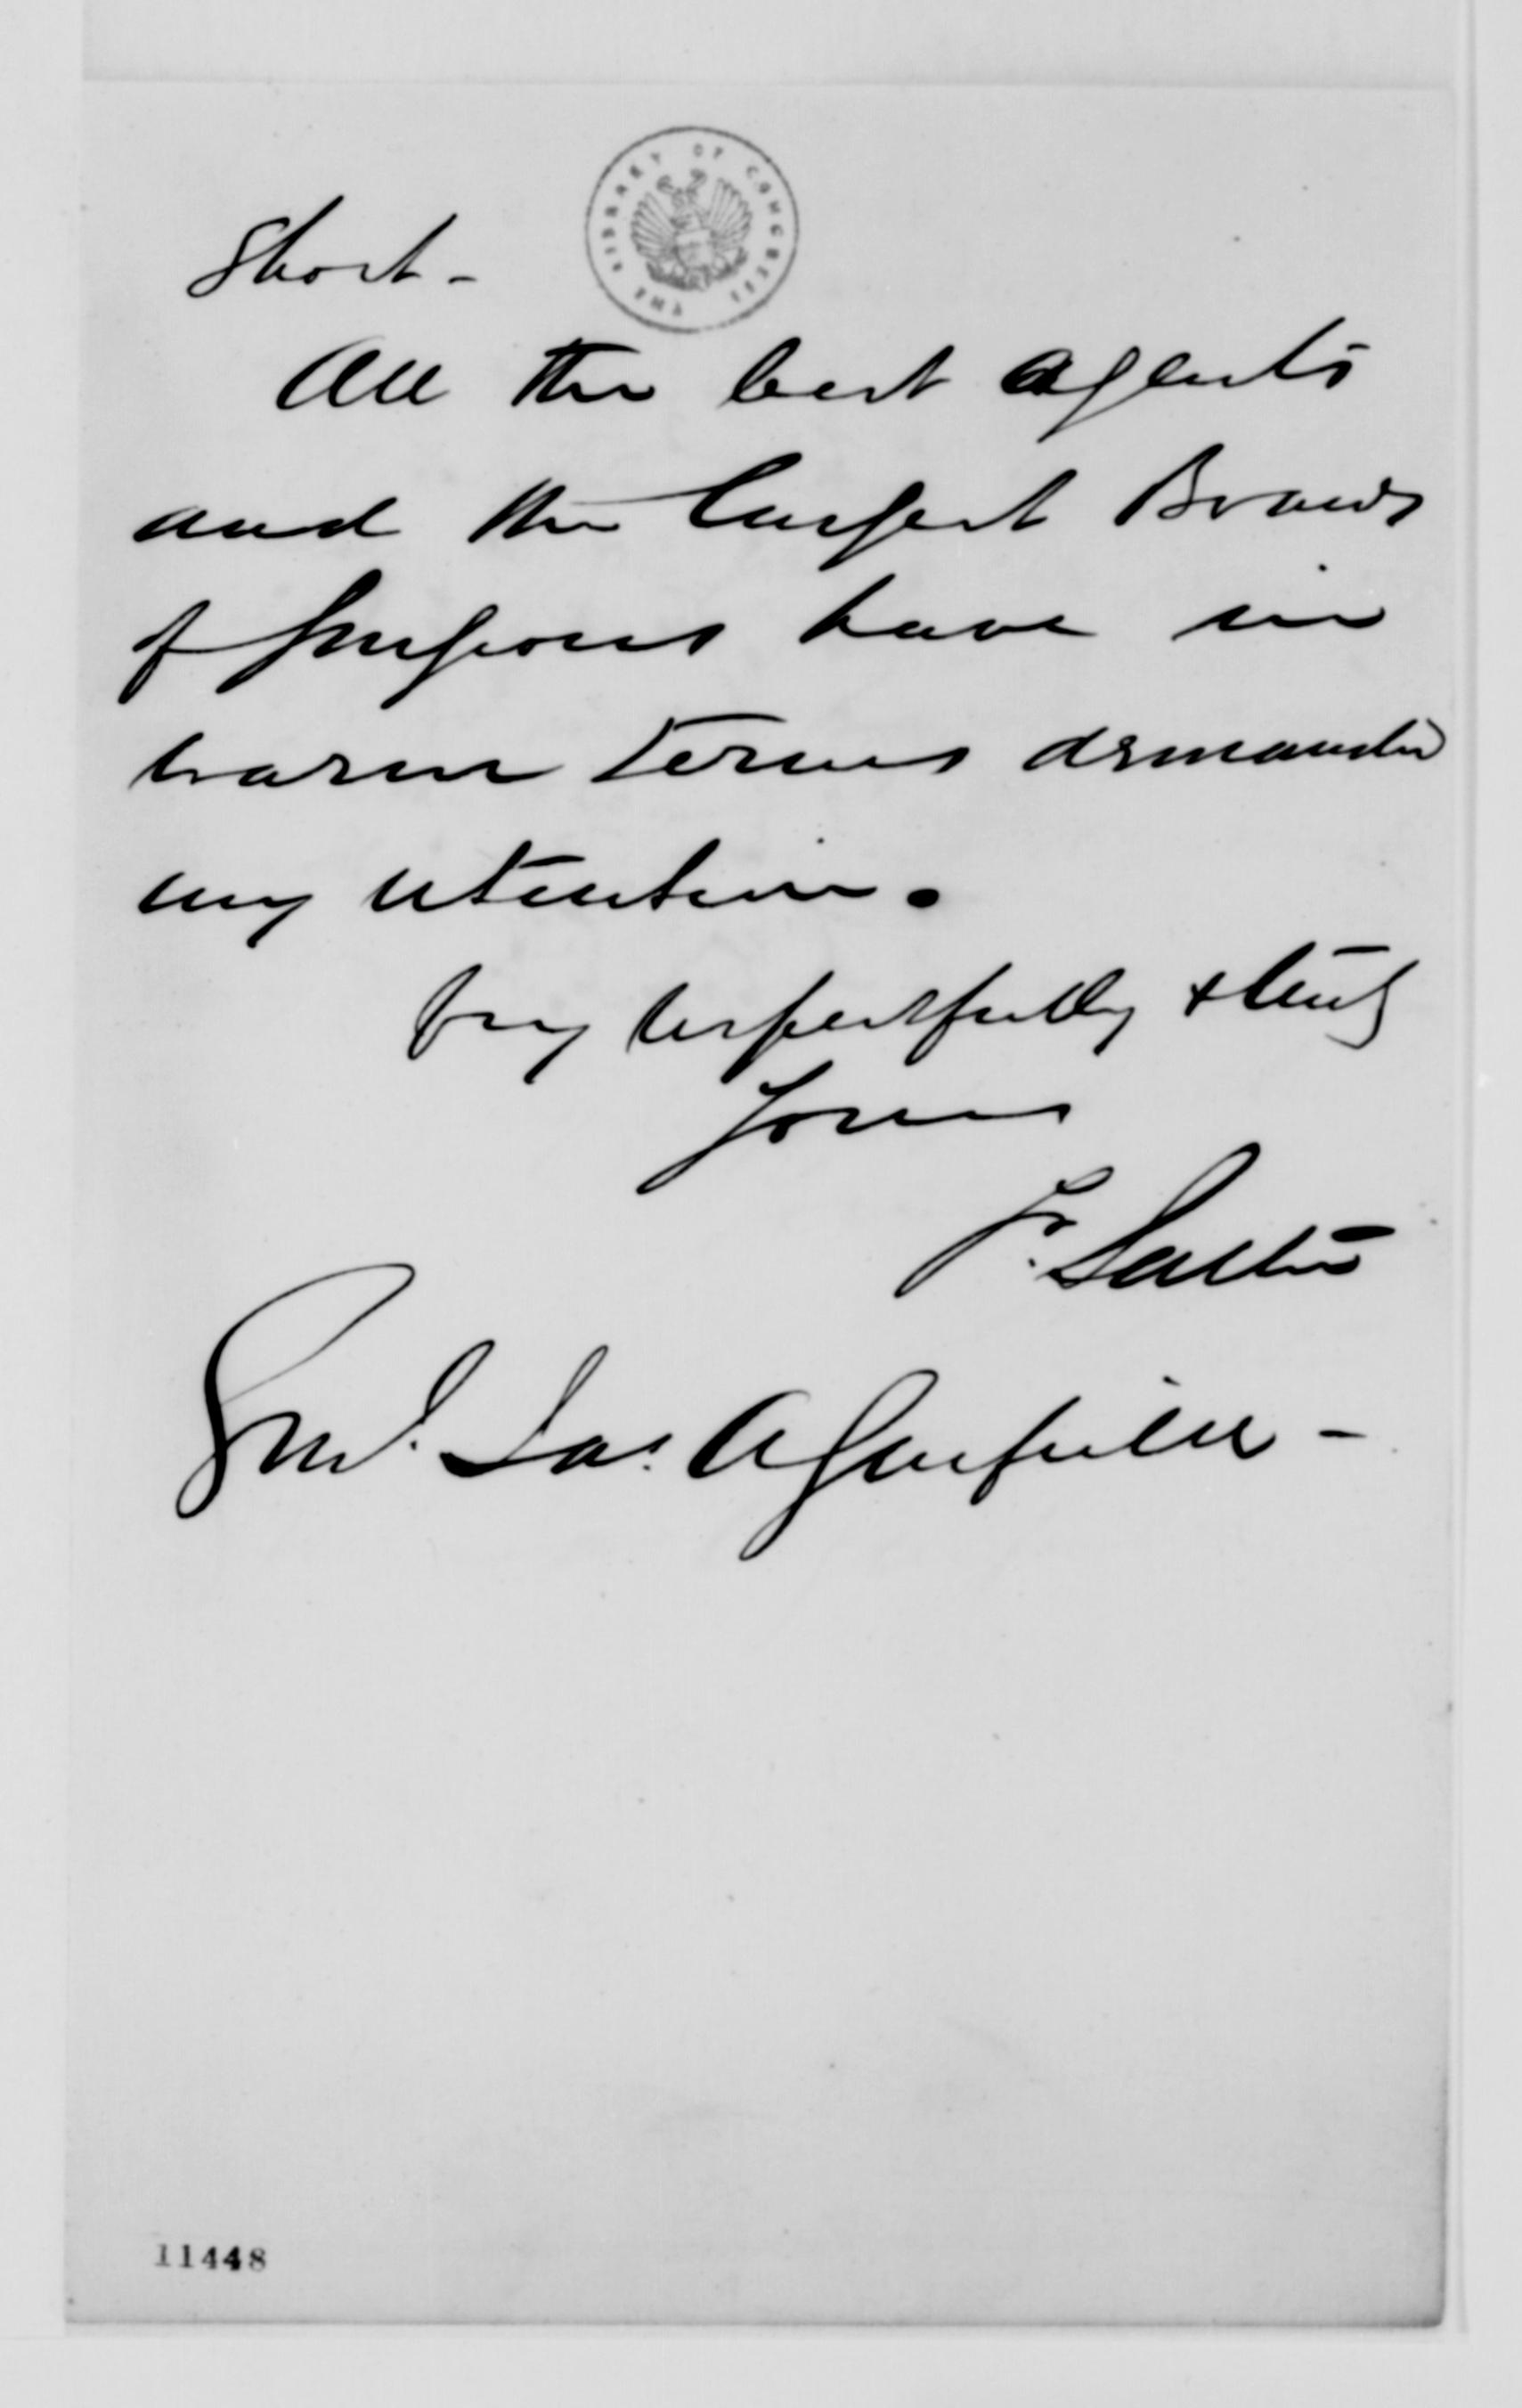 THE LIBRARY OF CONGRESS
Short -
All the best agents
and the largest Boards
of Surgeons have in
warm terms demanded
my retention.
Very respectfully & truly
Yours
Genl. Jas. A Garfield -
11448